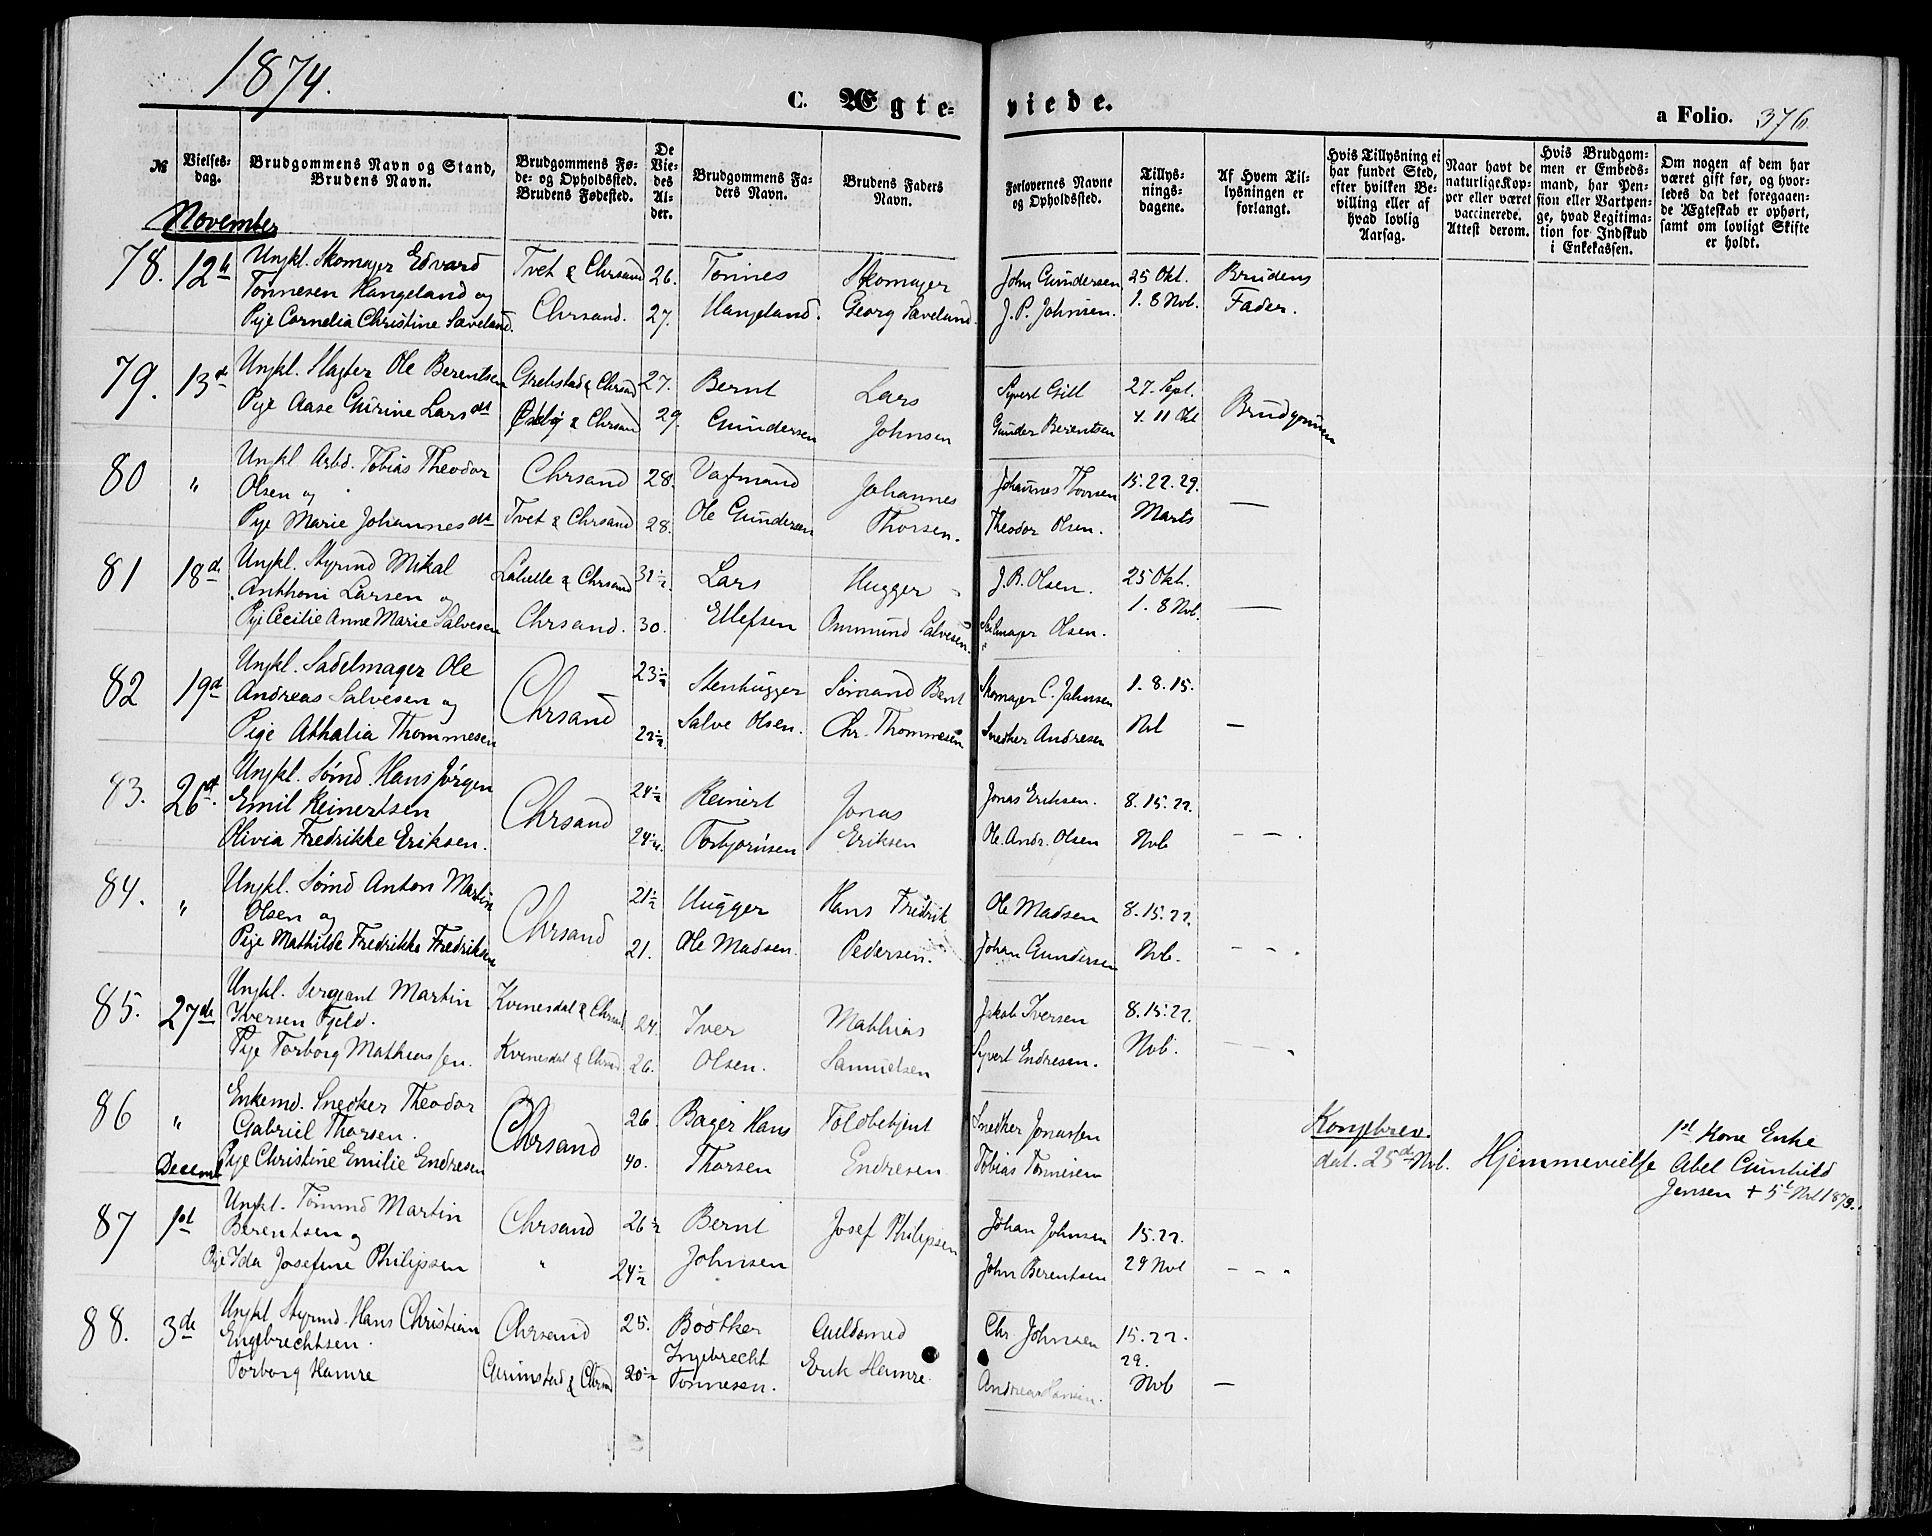 1874.
C. Ægteviede.
a Folio. 376.
№
Vielsesdag.
Brudgommens Navn og Stand, Brudens Navn.
Brudgommens Føde- og Opholdssted. Brudens Fødested.
De Viedes Alder.
Brudgommens Faders Navn.
Brudens Faders Navn.
Forlovernes Navne og Opholdssted.
Tillysningsdagene.
Af Hvem Tillysningen er forlangt.
Hvis Tillysning ei har fundet Sted, efter hvilken Bevilling eller af hvad lovlig Aarsag.
Naar havt de naturlige Kopper eller været vaccinerede. Attest derom.
Hvis Brudgommen er Embedsmand, har Pension eller Vartpenge, hvad Legitimation for Indskud i Enkekassen.
Om nogen af dem har været gift før, og hvorledes da det foregaaende Ægteskab er ophørt, samt om lovligt Skifte er holdt.
November
78. 12te Ungkl. Skomager Edvard Tvet & Chrsand 26. Tønnes Skomager John Gundersen 25 Okt. Brudens
Tønnesen Hangeland og Chrsand. 27. Hangeland. Georg Saveland. J. P. Johnsen. 1. 8 Nvb. Fader.
Pige Cornelia Christine Saveland.
79. 13de Ungkl. Slagter Ole Berentsen & Chrsand 27. Bernt Lars Syvert Gill 27. Sept. Brudgommen
Pige Aase Gurine Larsdt & Chrsand 29. Gundersen Johnsen Gunder Berentsen 4. 11 Okt
80 " Ungkl Arbd. Tobias Theodor Chrsand 28. Johannes Johannes Thorsen 15. 22. 29. —
Olsen og
Pige Marie Johannesdt Tvet & Chrsand 28. Ole Gundersen Thorsen. Theodor Olsen. Marts
81 18de Ungkl. Styrmd Mikal & Chrsand 31½ Lars Hugger J. B. Olsen. 25 Okt.
Anthoni Larsen og 1. 8 Nvb. —
Pige Cecilie Anne Marie Salvesen Chrsand. 30. Ellefsen Ommund Salvesen. Seilmager Olsen.
82 19de Ungkl. Sadelmager Ole Chrsand 23½ Stenhugger Sømand Bent Skomager C. Johnsen 1. 8. 15.
Andreas Salvesen og
Pige Athalia Thommesen 22½ Salve Olsen. Chr. Thommesen Snedker Andresen Nvb —
83. 26de. Ungkl. Sømd. Hans Jørgen Chrsand 24½ Reinert Jonas Jonas Eriksen. 8. 15. 22.
Emil Reinertsen
Olivia Fredrikke Eriksen. 24¼. Torbjørnsen Eriksen Ole Andr. Olsen Nvb — — .
84. " Ungkl. Sømd Anton Martin Chrsand 21½ Hugger Hans Fredrik Ole Madsen 8. 15. 22.
Olsen og
Pige Mathilde Fredrikke Fredriksen 21. Ole Madsen. Pedersen. Johan Gundersen Nvb. — — .
85. 27de Ungkl. Sergeant Martin Kvinesdal & Chrsand. 24. Iver Mathias Jakob Iversen 8. 15. 22.
Iversen Fjeld.
Pige Torborg Mathiassen. Kvinesdal & Chrsand. 26. Olsen. Samuelsen Syvert Endresen. Nvb. — — .
86 " Enkemd. Snedker Theodor Chrsand 26 Bager Hans Toldbetjent Snedker Jonassen Kongebrev. 1st Kone Enke
Gabriel Thorsen.
Pige Christine Emilie Endresen 40. Thorsen Endresen Tobias Tønnesen dat. 25de Nvb. Hjemmevielse Abel Gunhild
Jensen + 5t Nvb 1873.
Decemb
87 1st Ungkl. Tømmd Martin Chrsand 26½ Bernt Josef Philipsen Johan Johnsen 15. 22.
Berentsen og
Pige Ida Josefine Philipsen " 24½ Johnsen John Berentsen 29 Nvb — — .
88. 3de Ungkl Styrmd. Hans Christian Chrsand 25. Bødtker Guldsmed Chr Johnsen 15. 22.
Engebrechtsen. Ingebrecht 29.
Torborg Hamre Grimstad & Chrsand 20½ Tønnesen. Erik Hamre. Andreas Hansen. Nvb —